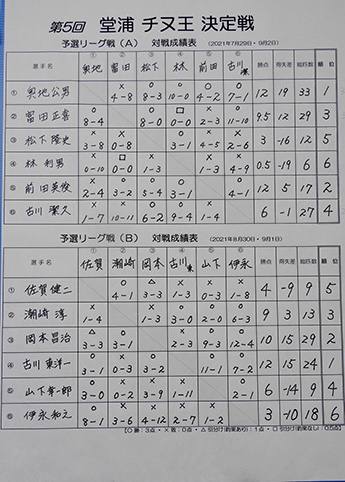 第5回 堂浦 チヌ王 決定戦
予選リーグ戦（A） 対戦成績表 （2021年7月29日・9月2日）
選手名 ① 奥地 ② 富田 ③ 松下 ④ 林 ⑤ 前田 ⑥ 古川潔 勝点 得失差 総匹数 順位
① 奥地公男 × 4-8 ○ 8-3 ○ 10-0 ○ 4-2 ○ 7-1 12 19 33 1
② 富田正喜 ○ 8-4 ○ 8-0 □ 0-0 × 2-3 ○ 11-10 9.5 12 29 3
③ 松下隆史 × 3-8 × 0-8 ○ 3-1 × 4-5 ○ 2-6 3 -16 12 5
④ 林 利男 × 0-10 □ 0-0 × 1-3 × 1-3 × 4-9 0.5 -19 6 6
⑤ 前田英俊 × 2-4 ○ 3-2 ○ 5-4 ○ 3-1 ○ 4-1 12 5 17 2
⑥ 古川潔久 × 1-7 × 10-11 ○ 6-2 ○ 9-4 × 1-4 6 -1 27 4
予選リーグ戦（B） 対戦成績表 （2021年8月30日・9月1日）
選手名 ① 佐賀 ② 潮崎 ③ 岡本 ④ 古川東 ⑤ 山下 ⑥ 伊永 勝点 得失差 総匹数 順位
① 佐賀健二 ○ 4-1 △ 3-3 × 1-3 × 0-3 × 1-8 4 -9 9 5
② 潮崎 淳 × 1-4 × 1-3 ○ 3-0 ○ 2-0 ○ 6-3 9 3 13 3
③ 岡本昌治 △ 3-3 ○ 3-1 × 2-3 ○ 9-3 ○ 12-4 10 15 29 2
④ 古川東洋一 ○ 3-1 × 0-3 ○ 3-2 ○ 11-1 ○ 7-2 12 15 24 1
⑤ 山下幸一郎 ○ 3-0 × 0-2 × 3-9 × 1-11 ○ 2-1 6 -14 9 4
⑥ 伊永和之 ○ 8-1 × 3-6 × 4-12 × 2-7 × 1-2 3 -10 18 6
【○ 勝：3点・× 敗：0点・△ 引分け(釣果あり)：1点・□ 引分け(釣果なし)：0.5点】